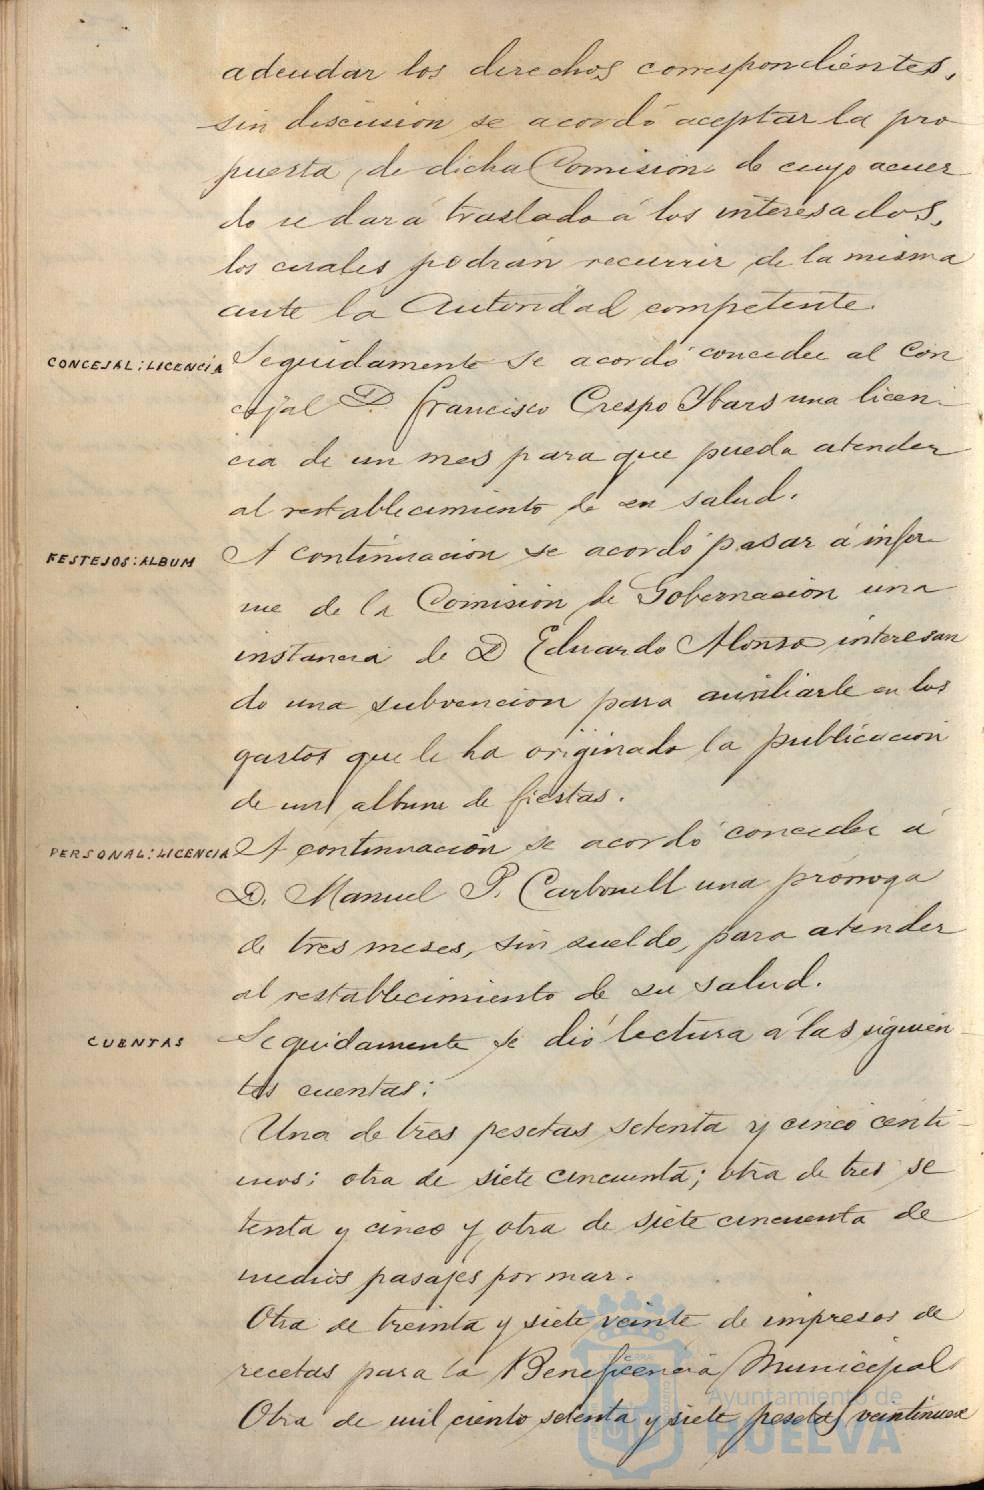 adeudar los derechos correspondientes,
sin discusion se acordó aceptar la pro
puesta, de dicha Comision de cuyo acuer
do se dará traslado á los interesados,
los cuales podrán recurrir de la misma
ante la Autoridad competente.
CONCEJAL: LICENCIA Seguidamente se acordó conceder al Con
cejal D. Francisco Crespo Ybars una licen-
cia de un mes para que pueda atender
al restablecimiento de su salud.
FESTEJOS: ALBUM A continuacion se acordó pasar á infor-
me de la Comision de Gobernacion una
instancia de D Eduardo Alonso interesan
do una subvencion para auxiliarle en los
gastos que le ha originado la publicacion
de un album de fiestas.
PERSONAL: LICENCIA A continuacion se acordó conceder á
D. Manuel P. Carbonell una prórroga
de tres meses, sin sueldo, para atender
al restablecimiento de su salud.
CUENTAS Seguidamente se dió lectura á las siguien-
tes cuentas:
Una de tres pesetas setenta y cinco centi-
mos; otra de siete cincuenta; otra de tres se
tenta y cinco y otra de siete cincuenta de
medios pasajes por mar.
Otra de treinta y siete veinte de impresos de
recetas para la Beneficencia Municipal
Otra de mil ciento setenta y siete pesetas veintinueve
Ayuntamiento de
HUELVA